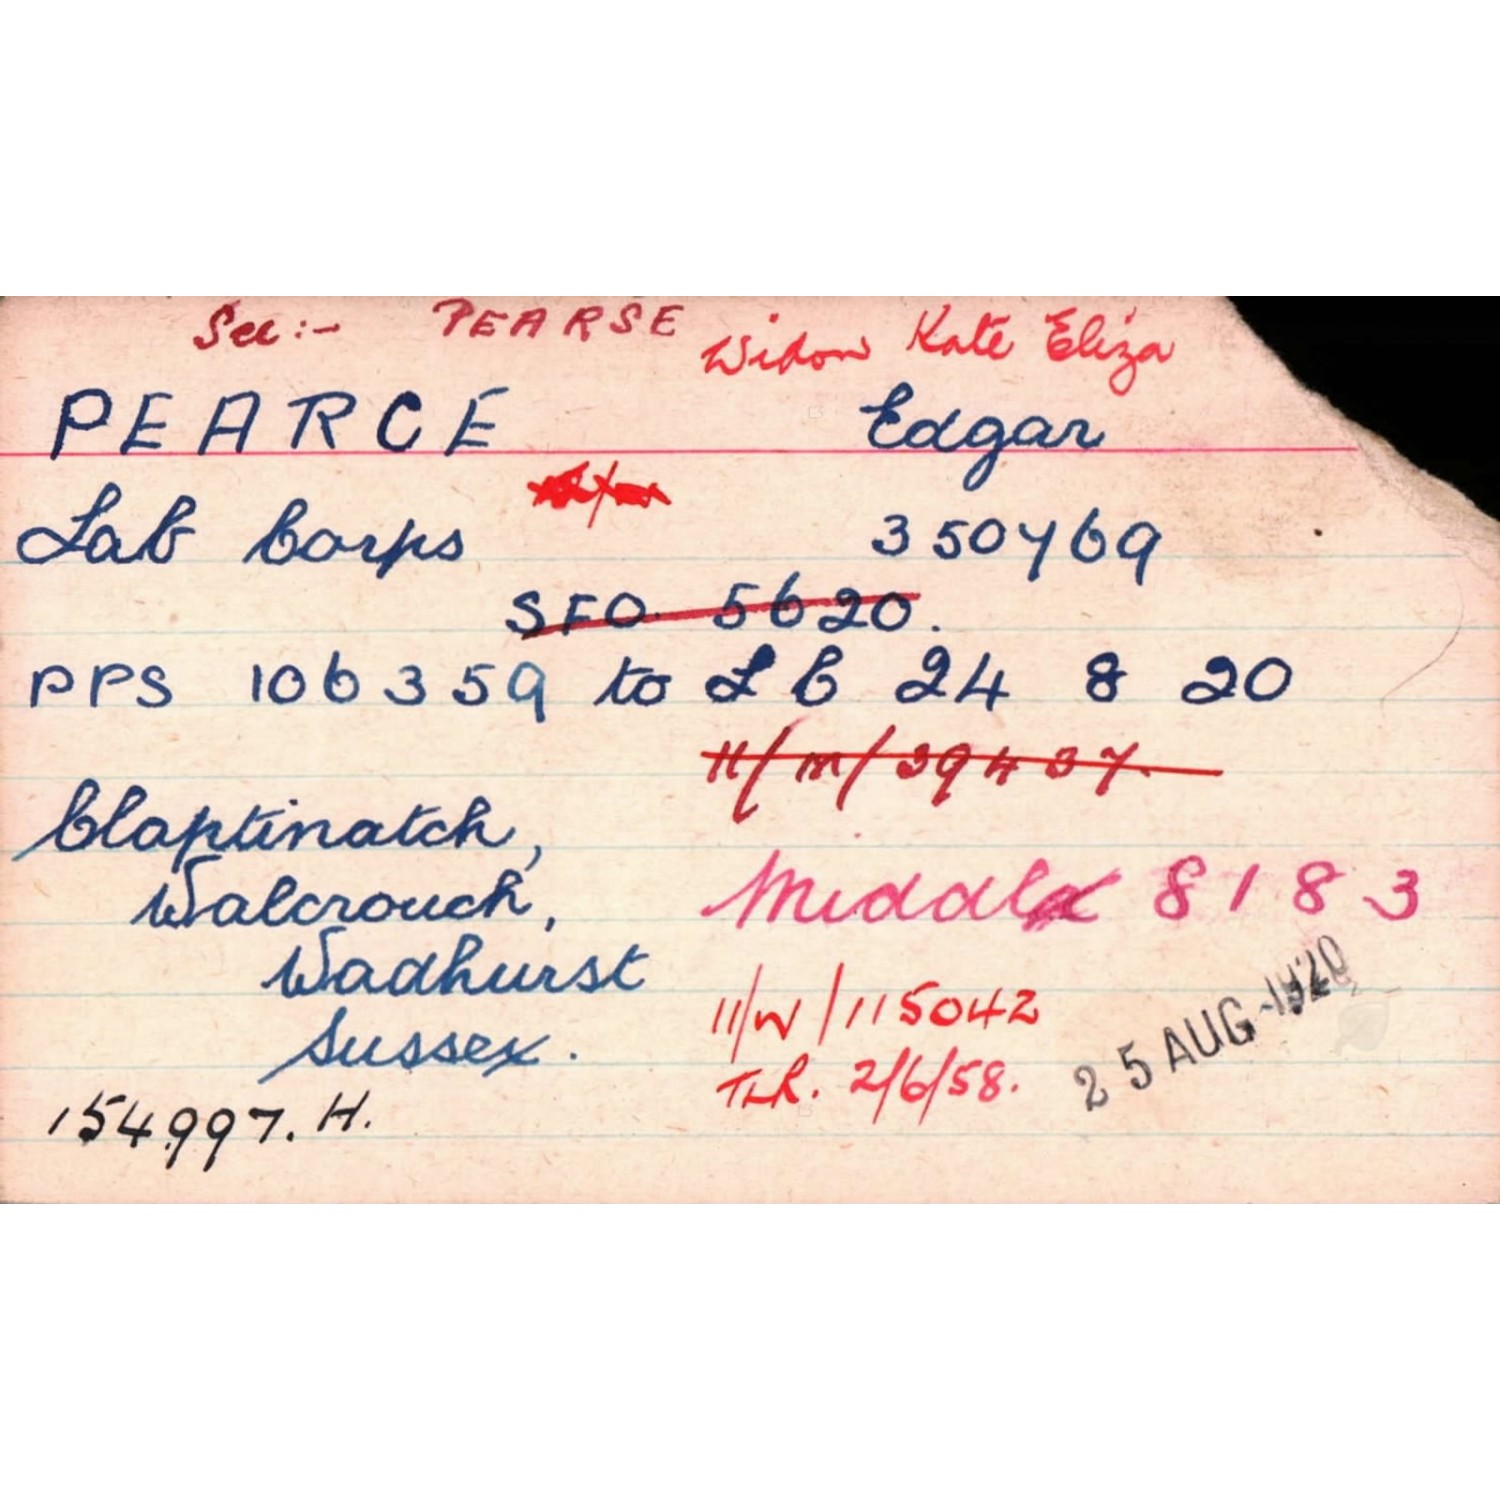 See :- PEARSE Widow Kate Eliza
PEARCE Edgar
Lab Corps 350769
SFO. 5620.
PPS 106359 to L C 24 8 20
11/M/39437.
Claptinatch,
Walcrouch,
Wadhurst
Sussex.
Middlx 8183
11/W/115042
TLR. 2/6/58.
25 AUG 1920
154997. H.